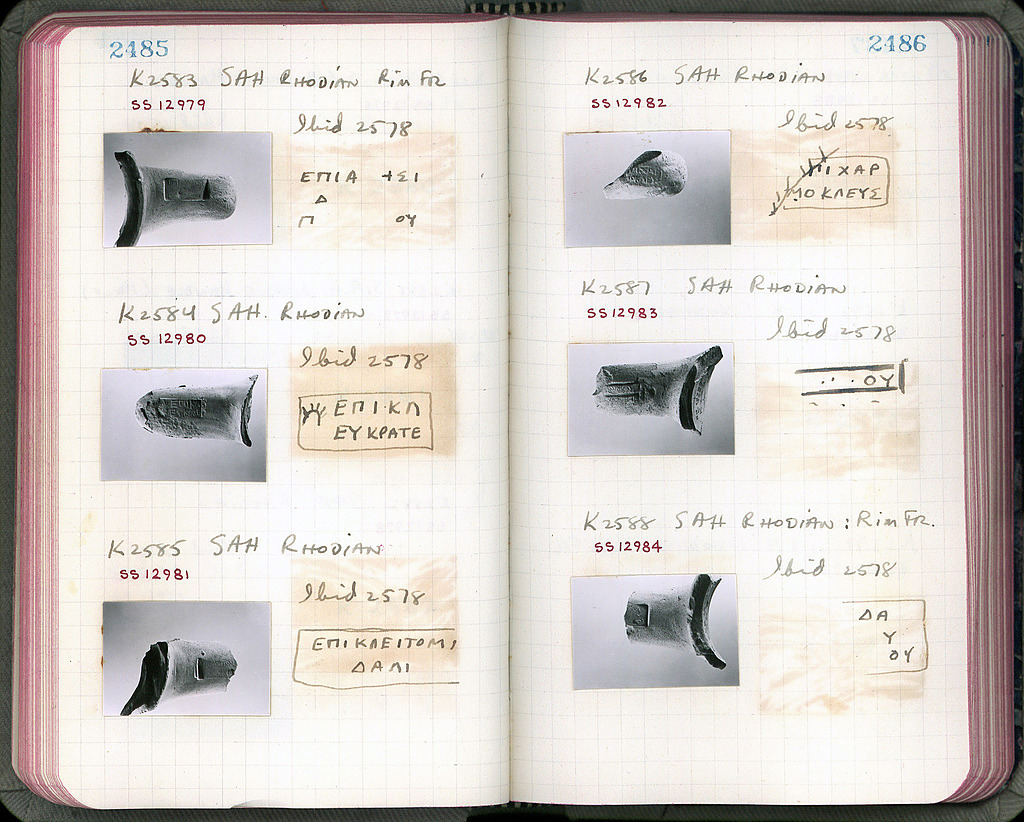 2485
K2583 SAH RHODIAN Rim Fr
SS 12979
Ibid 2578
ΕΠΙΑ ΤΣΙ
Δ
Π ΟΥ
K2584 SAH. RHODIAN
SS 12980
Ibid 2578
ΕΠΙΚΛ
ΕΥΚΡΑΤΕ
K2585 SAH RHODIAN
SS 12981
Ibid 2578
ΕΠΙΚΛΕΙΤΟΜ
ΔΑΛΙ
2486
K2586 SAH RHODIAN
SS 12982
Ibid 2578
ΠΙΧΑΡ
ΜΟΚΛΕΥΣ
K2587 SAH RHODIAN
SS 12983
Ibid 2578
... ΟΥ
K2588 SAH RHODIAN: Rim Fr.
SS 12984
Ibid 2578
ΔΑ
Υ
ΟΥ